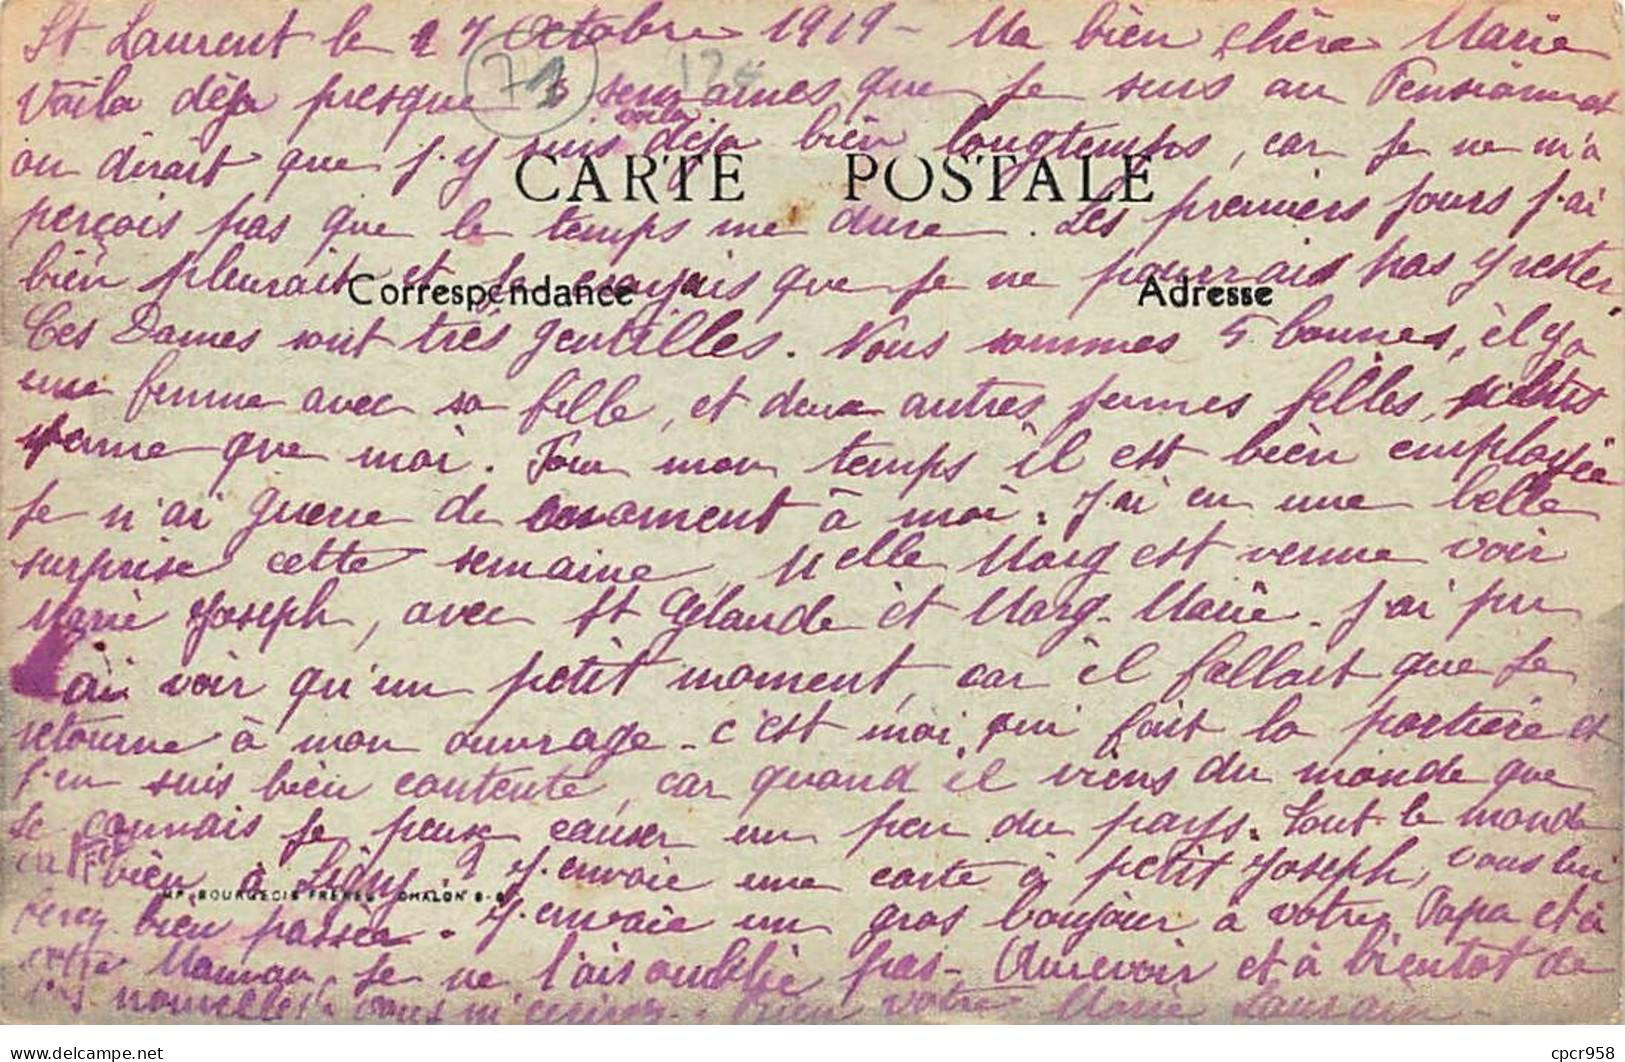 St Laurent le 27 Octobre 1919 - Ma bien chère Marie
71
124
Voila déja presque 3 semaines que je suis au Pensionnat
on dirait que j.y suis voila déja bien longtemps, car je ne m'a
CARTE POSTALE
perçois pas que le temps me dure. Les premiers jours j.ai
bien pleurait et je croyais que je ne pourrais pas y rester.
Correspondance Adresse
Ces Dames sont très gentilles. Nous sommes 5 bonnes, il y a
une femme avec sa fille, et deux autres jeunes filles,
jeune que moi. Pour mon temps il est bien employée
je n'ai guerre de moment à moi. J'ai eu une belle
surprise cette semaine, Melle Marg est venue voir
Marie Joseph, avec St Claude et Marg-Marie. J'ai pu
ai voir qu'un petit moment, car il fallait que je
retourne à mon ouvrage - c'est moi, qui fait la portière et
j'en suis bien contente, car quand il viens du monde que
je connais je peux causer un peu du pays. Tout le monde
bien à Ligny ? J.envoie une carte à petit Joseph, vous lui
IMP. BOURGEOIS FRÈRES CHALON S-S
ferez bien passée. J.envoie un gros bonjour à votre Papa et à
votre Maman, je ne l'ais oublié pas - Aurevoir et à bientot de
vos nouvelles votre Marie
cpcr958